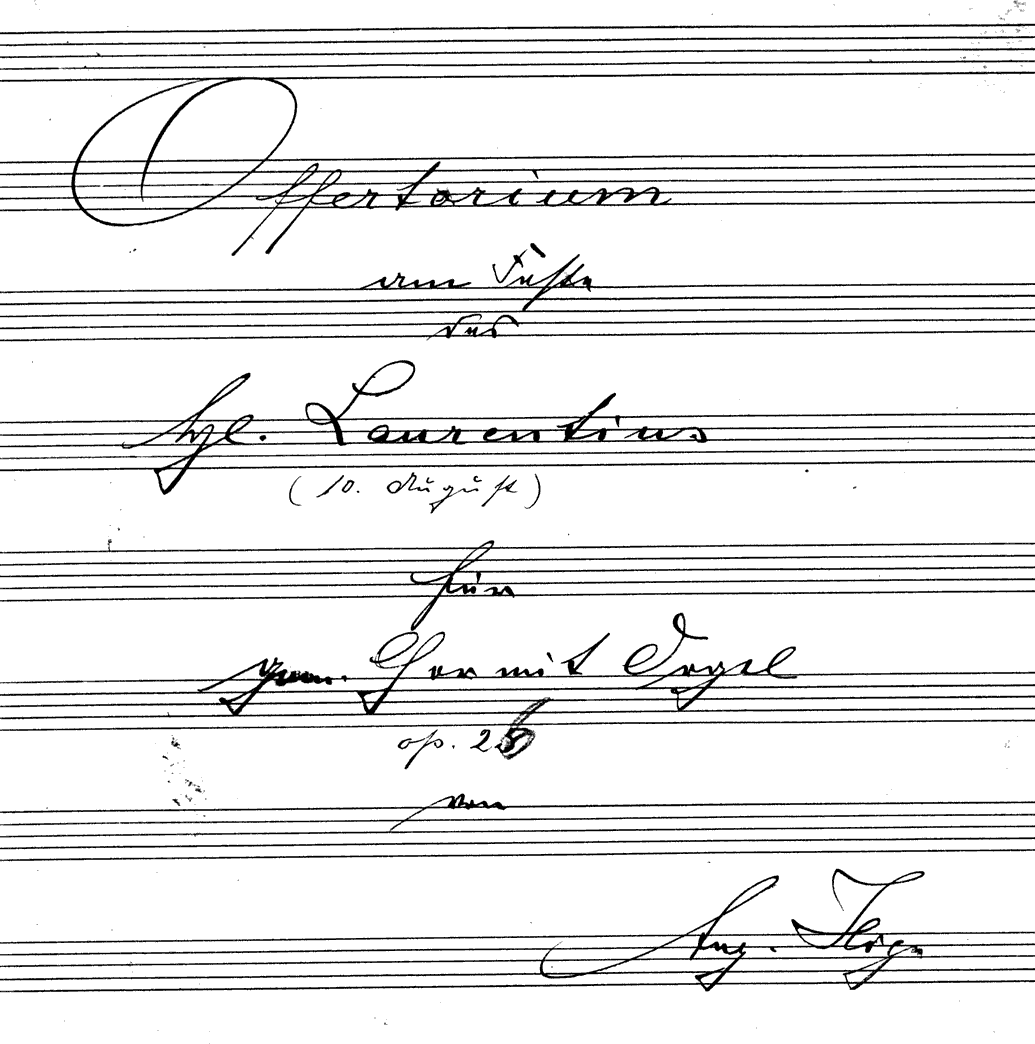 Offertorium
am Feste
des
hl. Laurentius
(10. August)
für
gem. Chor mit Orgel
op. 26
von
Aug.